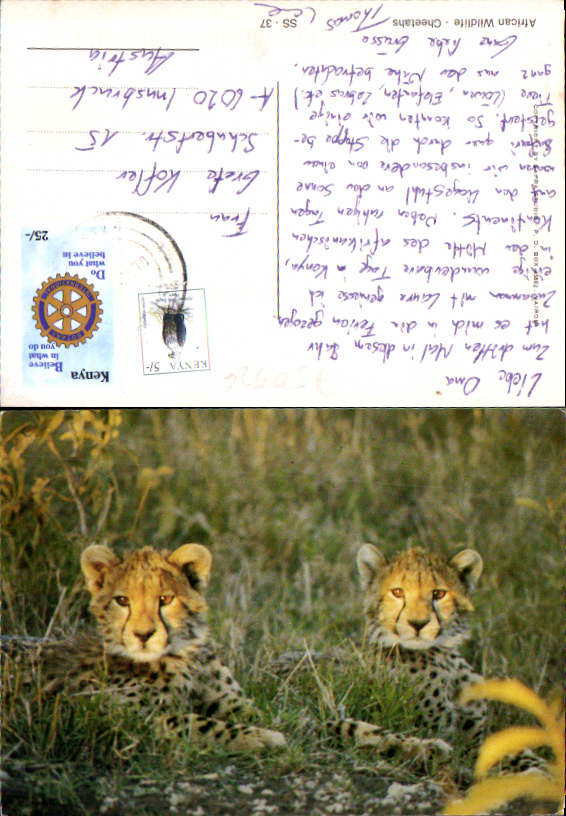 Liebe Oma
Zum dritten Mal in diesem Jahr
hat es mich in die Ferien gezogen
Zusammen mit Laura geniesse ich
einige wunderbare Tage in Kenya,
in der Mitte des afrikanischen
Kontinents. Neben ruhigen Tagen
auf dem Liegestuhl an der Sonne
waren wir insbesondere von einer
Safari quer durch die Steppe be-
geistert. So konnten wir einige
Tiere (Löwen, Elefanten, Zebras etc.)
ganz aus der Nähe betrachten.
Ganz liebe Grüsse
Thomas
African Wildlife · Cheetahs
SS · 37
KENYA 5/-
Kenya
Believe
in what
you do
ROTARY
INTERNATIONAL
Do
what you
believe in
25/-
Frau
Grete Kofler
Schubertstr. 15
A-6020 Innsbruck
Austria